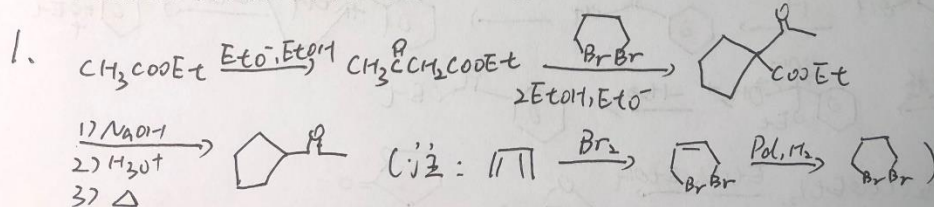 1. CH₃COOEt EtO⁻, EtOH CH₃CCH₂COOEt Br Br 2EtOH, EtO⁻ COOEt
O O
1) NaOH
2) H₃O⁺
3) △
O (注: Br₂ Br Br Pd, H₂ Br Br )